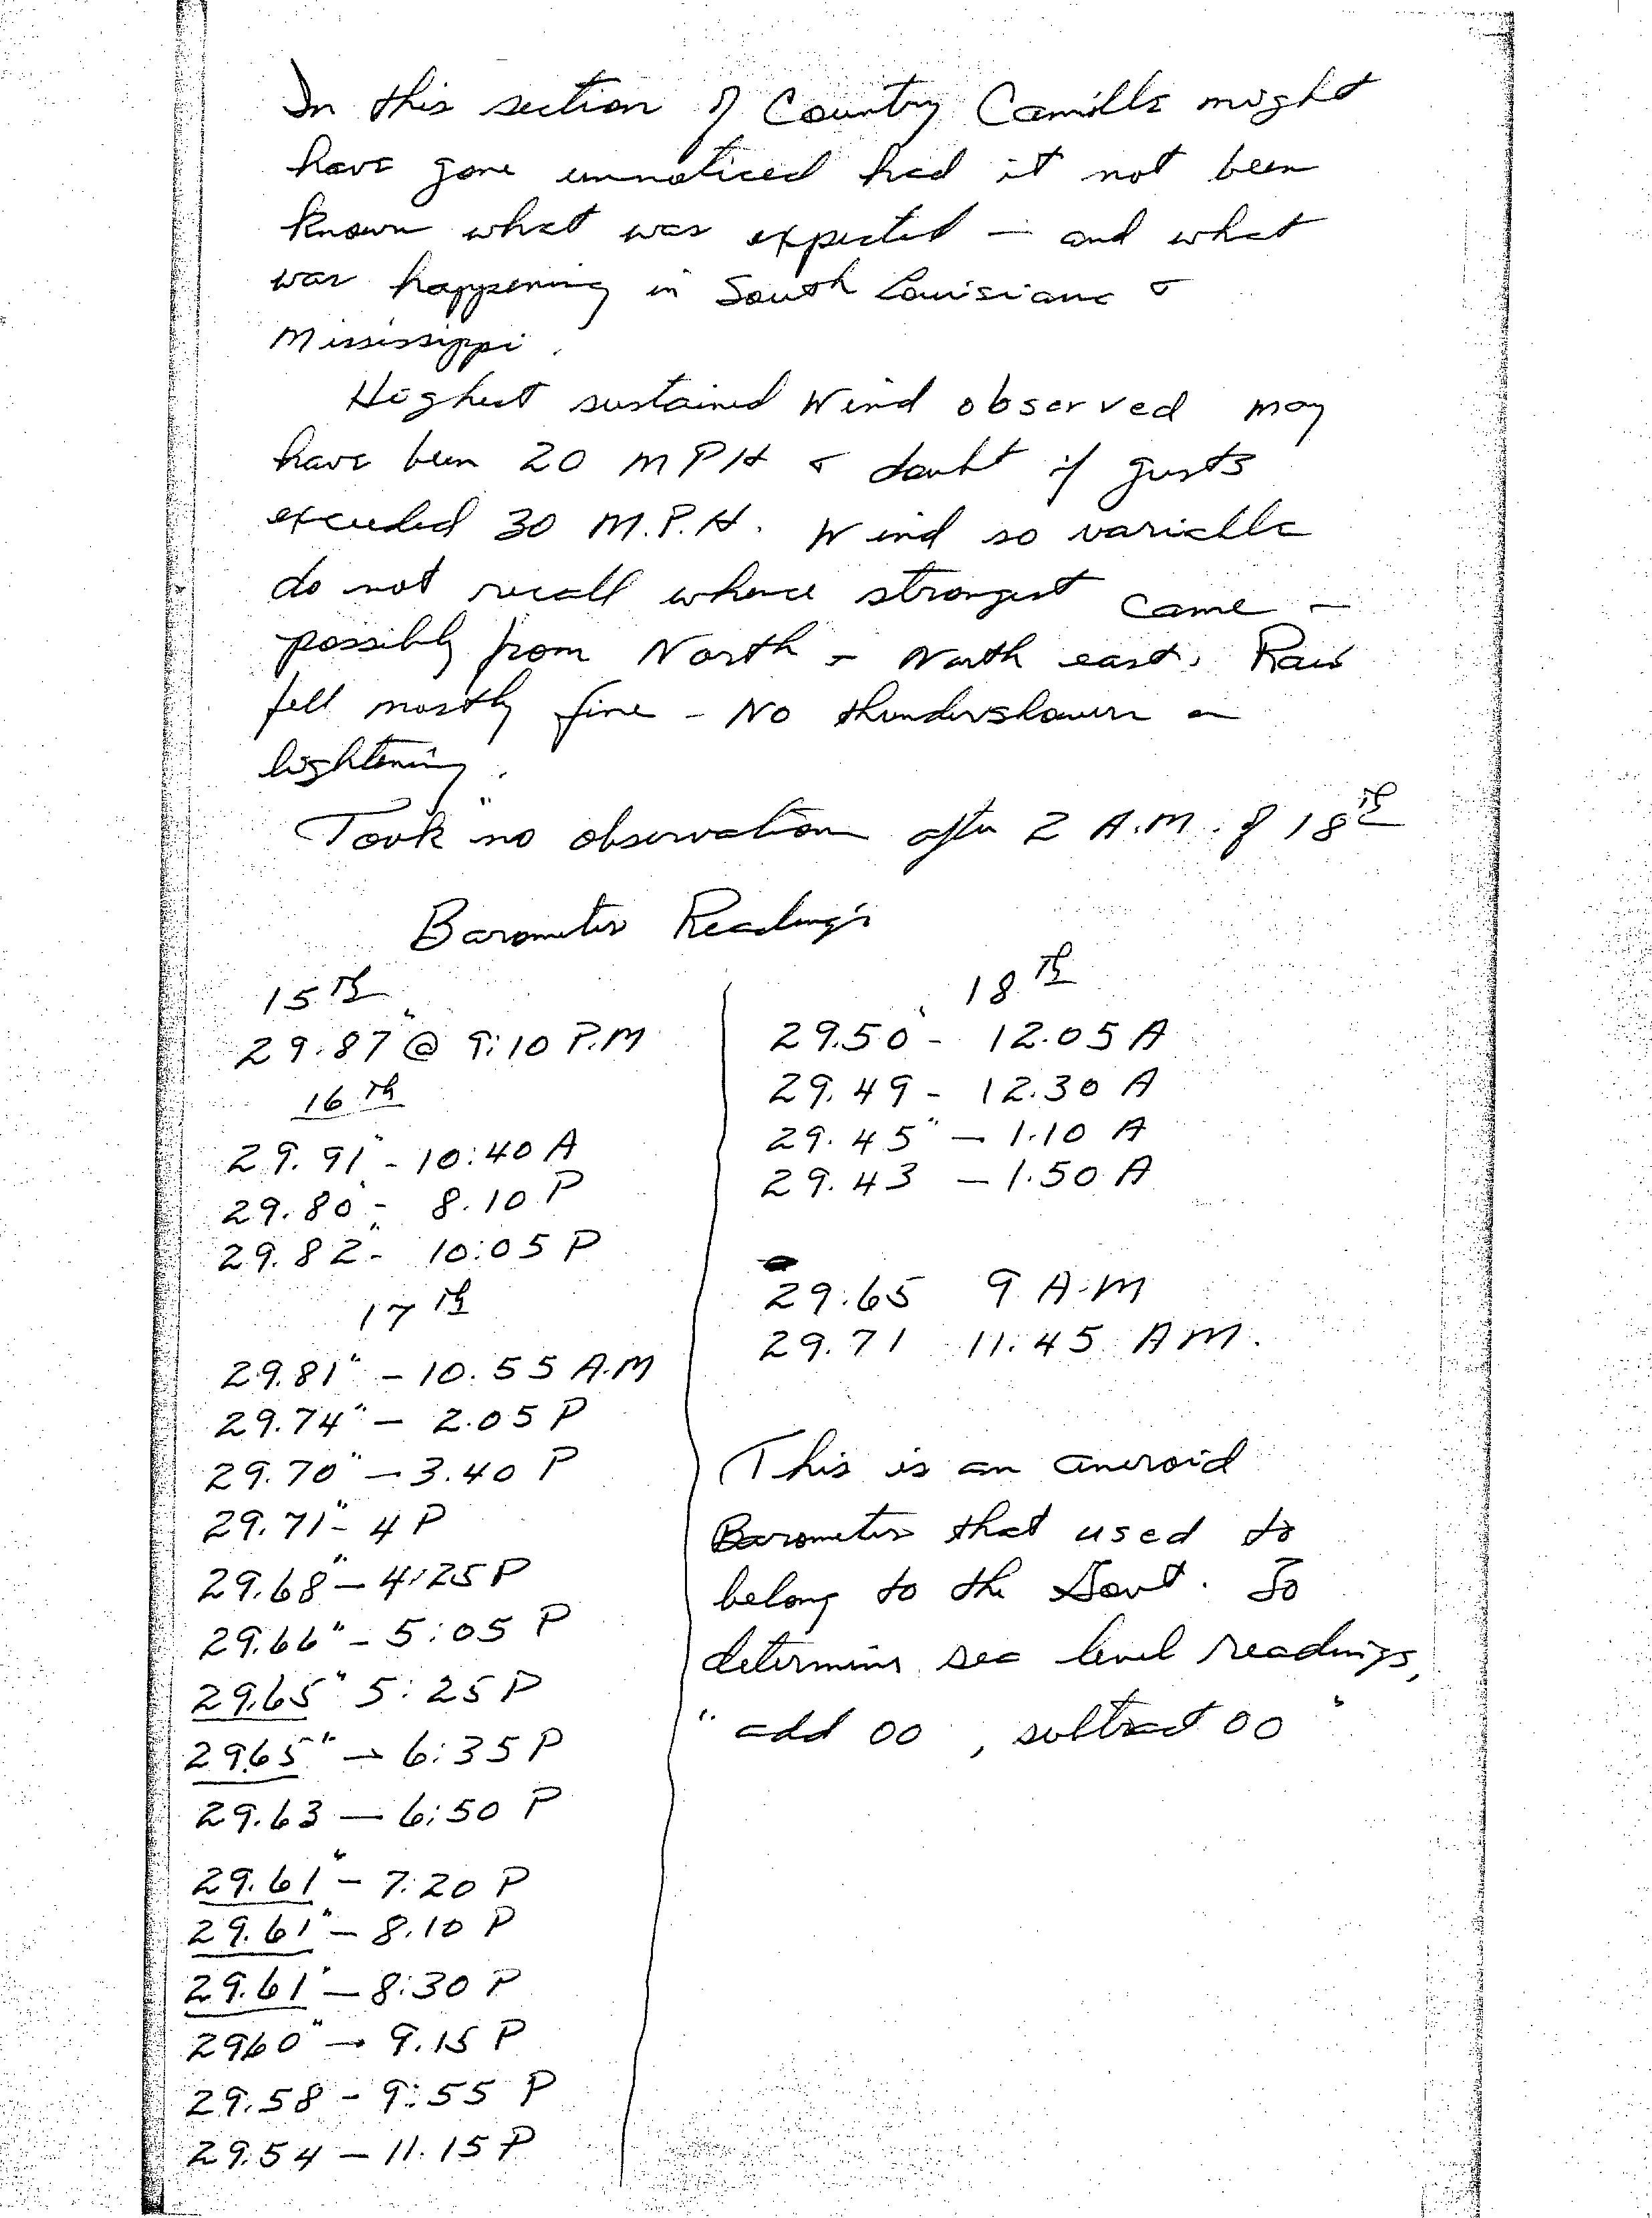 In this section of Country Camille might
have gone unnoticed had it not been
known what was expected - and what
was happening in South Louisiana &
Mississippi.
Highest sustained Wind observed may
have been 20 MPH & doubt if gusts
exceeded 30 M.P.H. Wind so variable
do not recall whence strongest came -
possibly from North - North east. Rain
fell mostly fine - No thundershowers or
lightening.
Took no observation after 2 A.M. of 18th
Barometer Readings
15th
29.87" @ 9:10 P.M
16th
29.91" - 10:40 A
29.80" - 8.10 P
29.82" - 10:05 P
17th
29.81" - 10.55 A.M
29.74" - 2.05 P
29.70" - 3.40 P
29.71" - 4 P
29.68" - 4:25 P
29.66" - 5:05 P
29.65" 5:25 P
29.65" - 6:35 P
29.63 - 6:50 P
29.61" - 7:20 P
29.61" - 8.10 P
29.61" - 8:30 P
29.60" - 9.15 P
29.58 - 9:55 P
29.54 - 11.15 P
18th
29.50" - 12.05 A
29.49 - 12.30 A
29.45" - 1.10 A
29.43 - 1.50 A
29.65 9 A.M
29.71 11.45 AM.
This is an aneroid
Barometer that used to
belong to the Govt. To
determine sea level readings,
"add 00, subtract 00"